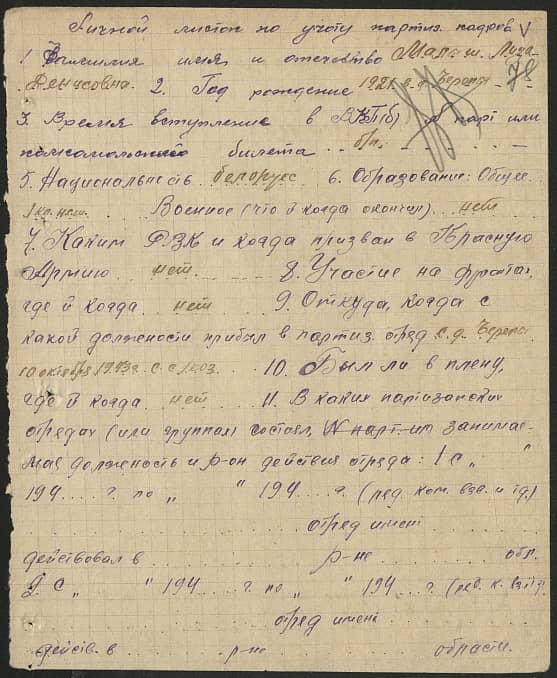 Личной листок по учоту партиз. кадров V
1 Фамилия имя и отечество Малаш. Лиза 78
Денисовна. 2. Год рождение 1921 с.д.
3. Время вступление в ВКП(б) парт или
комсомольского билета б/п.
5. Национальность белорус 6. Образование: Общее
1 кл. нсш. Военное (что и когда окончил) нет
7. Каким РВК и когда призван в Красную
Армию нет 8. Участие на фронтах,
где и когда нет 9. Откуда, когда с
какой должности прибыл в партиз. отряд с.д.
10 октября 1943 г. 10. Был ли в плену,
где и когда нет 11. В каких партизанских
отрядах (или группах) состоял, N парт. занимае-
мая должность и р-он действия отряда: 1 с „ "
194 .... г. по „ " 194 .... г. (ряд. ком. взв. и тд.)
отряд имени
действовал в р-не обл.
2. с „ " 194 .... г. по „ " 194 .. г. (ряд. к.
отряд имени
действ. в р-не области.